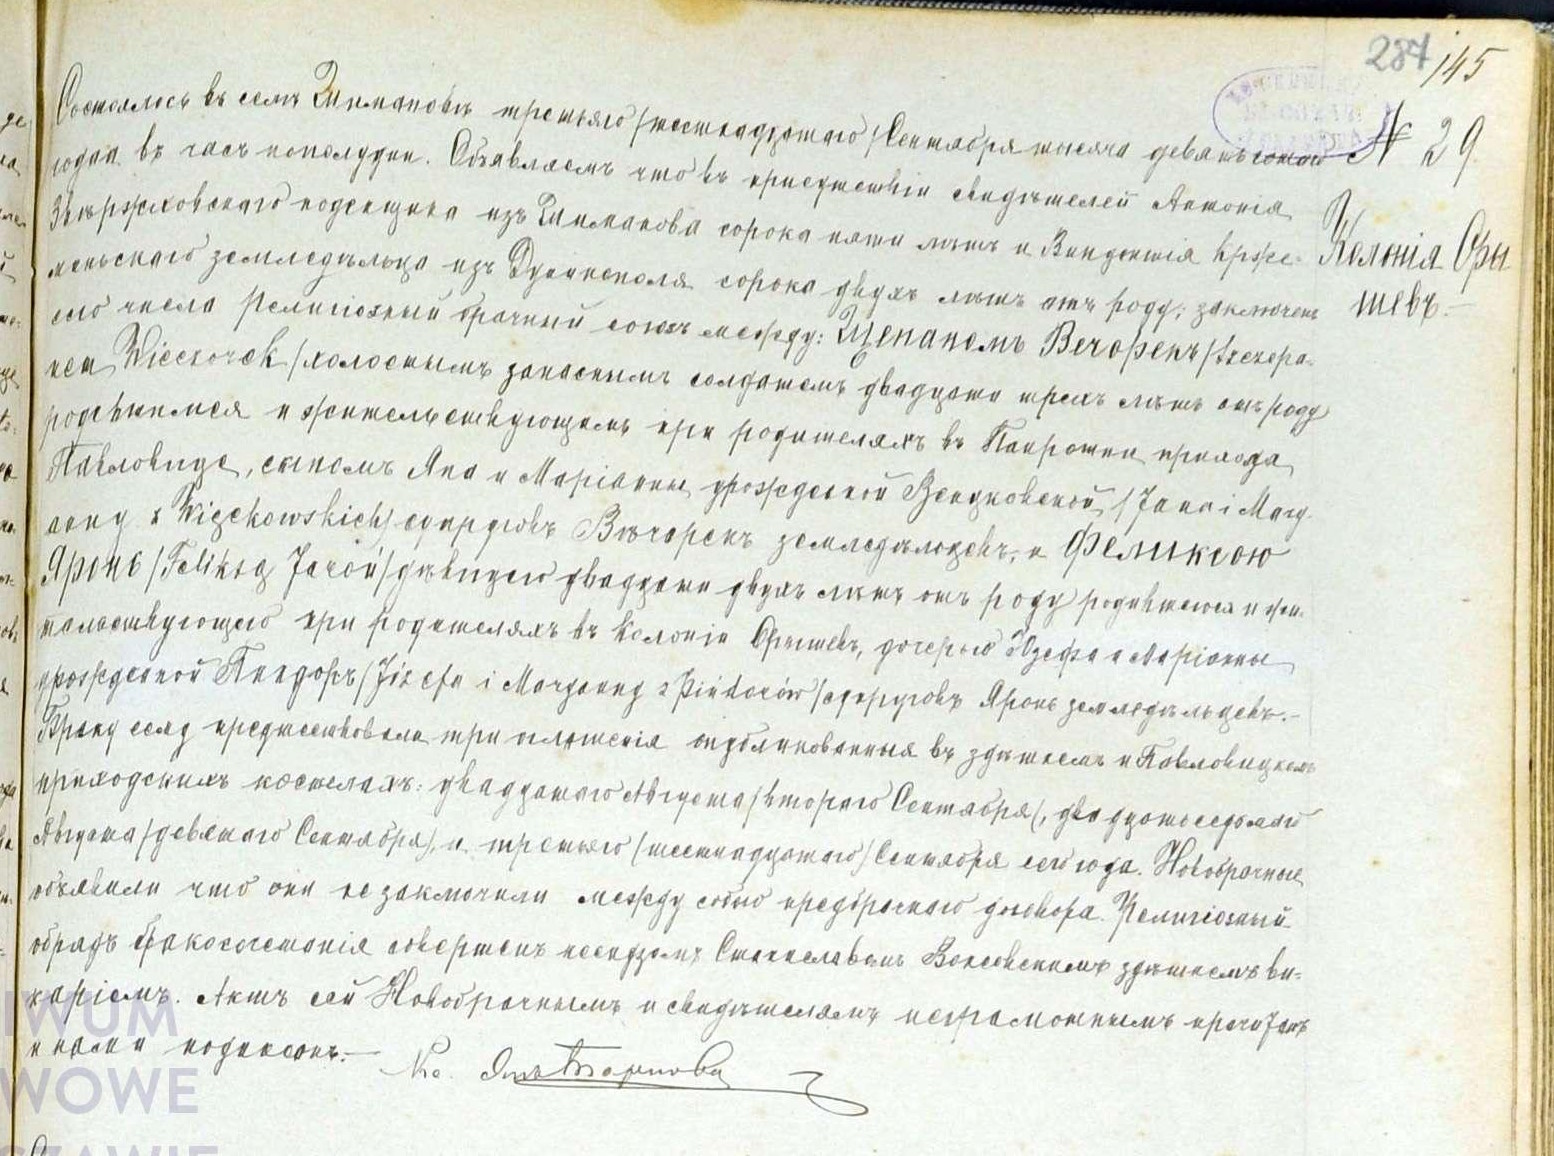 287 145
Состоялось въ селѣ Шимановѣ третьяго /шестнадцатаго/ Сентября тысяча девятьсотаго
года въ часъ пополудни. Объявляемъ что въ присутствіи свидѣтелей Антонія
Звѣржховскаго поденщика изъ Шиманова сорока пяти лѣтъ и Викентія
земледѣльца изъ сорока двухъ лѣтъ отъ роду; заключенъ
сего числа Религіозный брачный союзъ между: Щепаномъ Вечорекъ /Szczepa-
nem Wieczorek/ холостымъ запаснымъ солдатомъ двадцати трехъ лѣтъ отъ роду
родившимся и жительствующимъ при родителяхъ въ Папротни прихода
Павловице, сыномъ Яна и Маріанны урожденной /Jana i Mary-
anny z Więckowskich/ супруговъ Вѣчорекъ земледѣльцевъ; и Феликсою
Яронь /Feliksą Jaroń/ дѣвицею двадцати двухъ лѣтъ отъ роду родившеюся и жи-
тельствующею при родителяхъ въ Колоніи Орышевъ, дочерью Юзефа и Маріанны
урожденной Пиндоръ /Józefa i Maryanny z Pindorów/ супруговъ Яронь земледѣльцевъ.-
Браку сему предшествовали три оглашенія опубликованныя въ здѣшнемъ и Павловицкомъ
приходскихъ костелахъ: двадцатаго Августа /второго Сентября/, двадцатьседьмаго
Августа /девятаго Сентября/, и третьяго /шестнадцатаго/ Сентября сего года. Новобрачные
объявили что они не заключили между собою предбрачнаго договора. Религіозный
обрядъ бракосочетанія совершенъ ксендзомъ Станиславомъ здѣшнемъ ви=
каріемъ. Актъ сей Новобрачнымъ и свидѣтелямъ неграмотнымъ прочитанъ
и нами подписанъ.—
Кс. Янъ
№ 29
Колонія Оры
шевъ.—
IWUM
WOWE
SZAWIE